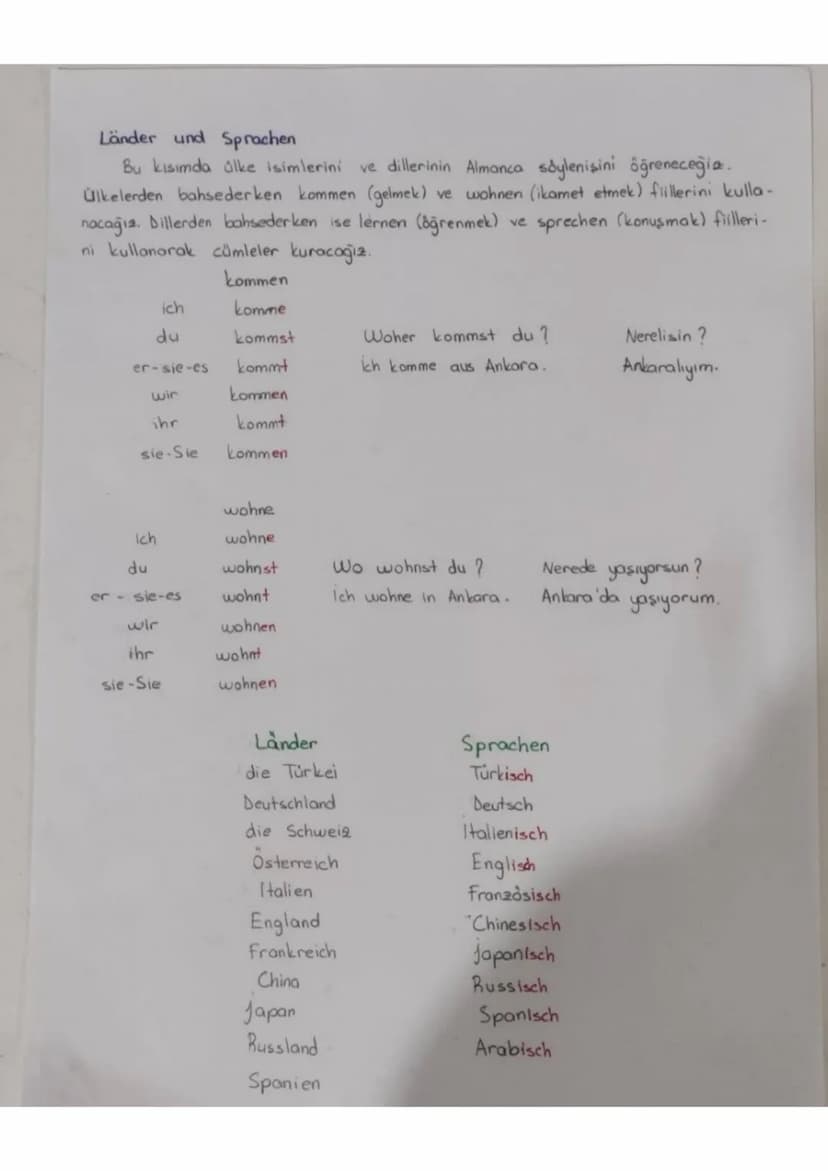 Länder und Sprachen
Bu kısımda ülke isimlerini ve dillerinin Almanca söylenişini öğreneceğiz.
Ülkelerden bahsederken kommen (gelmek) ve wohnen (ikamet etmek) fiillerini kulla-
nacağız. Dillerden bahsederken ise lernen (öğrenmek) ve sprechen (konuşmak) fiilleri-
ni kullanarak cümleler kuracağız.
kommen
ich komme
du kommst Woher kommst du? Nerelisin?
er-sie-es kommt ich komme aus Ankara. Ankaralıyım.
wir kommen
ihr kommt
sie-Sie kommen
wohne
ich wohne
du wohnst Wo wohnst du? Nerede yaşıyorsun?
er-sie-es wohnt ich wohne in Ankara. Ankara'da yaşıyorum.
wir wohnen
ihr wohnt
sie-Sie wohnen
Länder Sprachen
die Türkei Türkisch
Deutschland Deutsch
die Schweiz Italienisch
Österreich Englisch
Italien Französisch
England Chinesisch
Frankreich Japanisch
China Russisch
Japan Spanisch
Russland Arabisch
Spanien